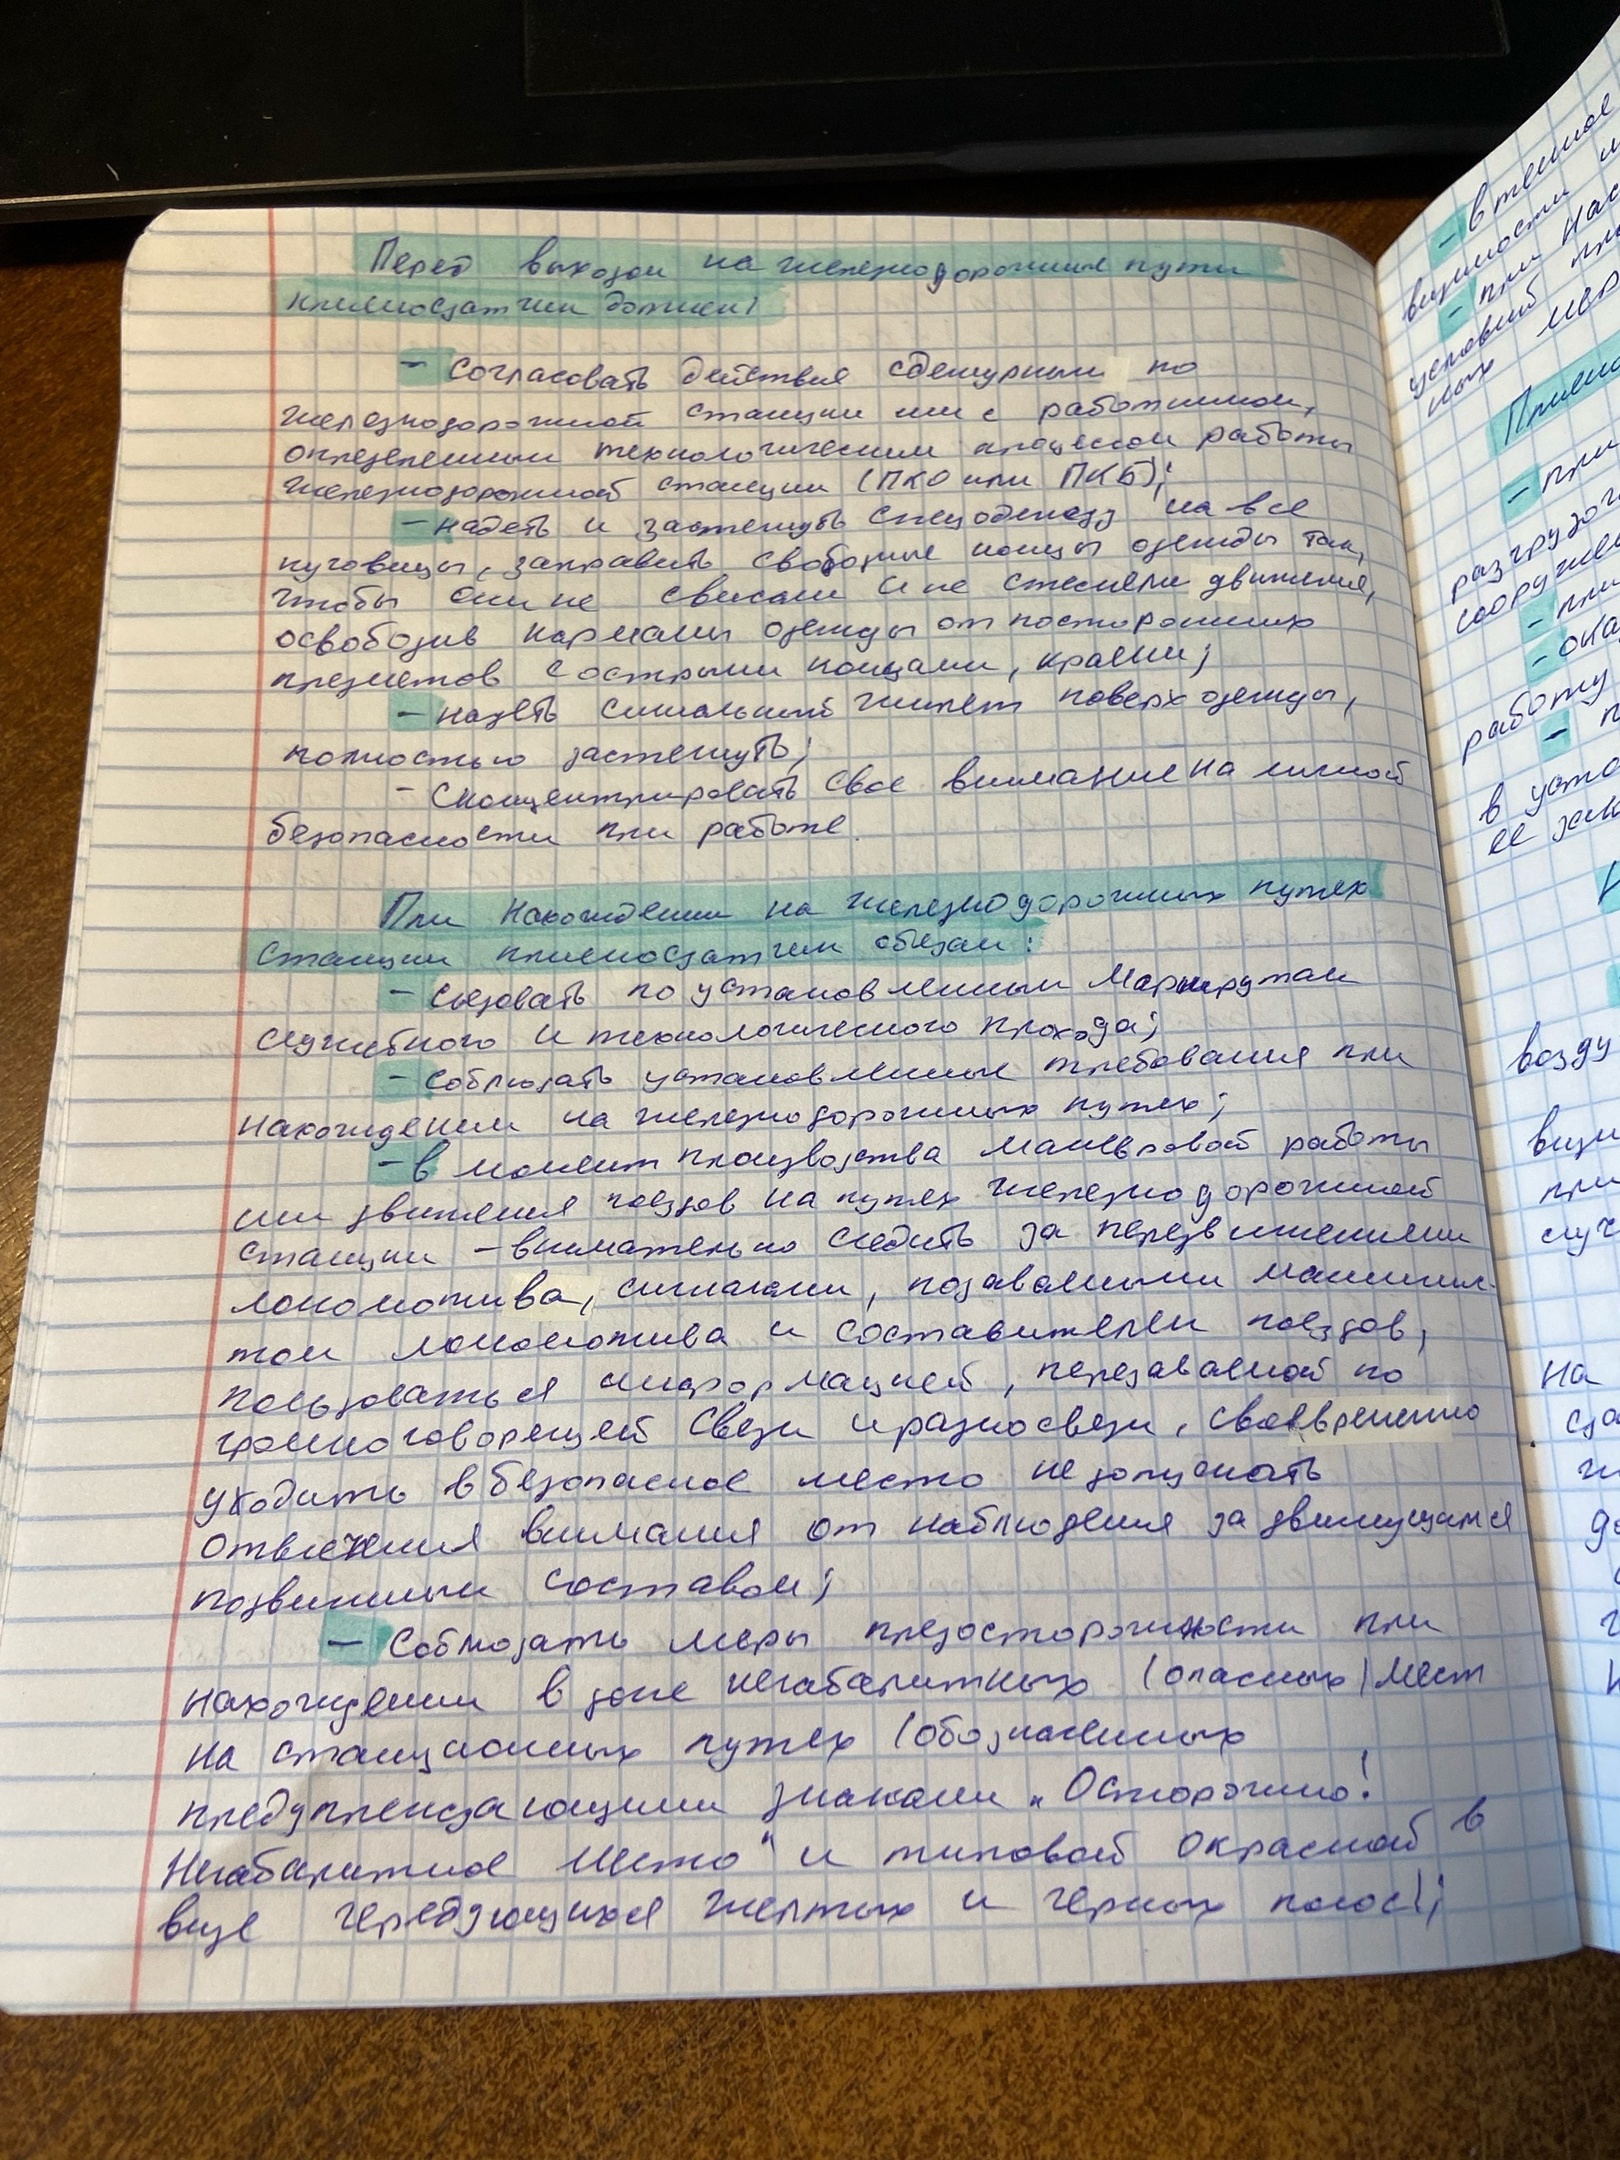 Перед выходом на железнодорожные пути
приемосдатчик должен:
- Согласовать действия с дежурным по
железнодорожной станции или с работником,
определенным технологическим процессом работы
железнодорожной станции (ПКО или ПКБ);
- надеть и застегнуть спецодежду на все
пуговицы, заправить свободные концы одежды так,
чтобы они не свисали и не стесняли движения,
освободив карманы одежды от посторонних
предметов с острыми концами, краями;
- надеть сигнальный жилет поверх одежды,
полностью застегнуть;
- Сконцентрировать свое внимание на личной
безопасности при работе.
При нахождении на железнодорожных путях
станции приемосдатчик обязан:
- Следовать по установленным маршрутам
служебного и технологического прохода;
- Соблюдать установленные требования при
нахождении на железнодорожных путях;
- в момент производства маневровой работы
или движения поездов на путях железнодорожной
станции - внимательно следить за передвижениями
локомотива, сигналами, подаваемыми машинис-
том локомотива и составителем поездов,
пользоваться информацией, передаваемой по
громкоговорящей связи и радиосвязи, своевременно
уходить в безопасное место не допускать
отвлечения внимания от наблюдения за движущимся
подвижным составом;
- Соблюдать меры предосторожности при
нахождении в зоне негабаритных (опасных) мест
на станционных путях (обозначенных
предупреждающими знаками „Осторожно!
Негабаритное место" и типовой окраской в
виде чередующихся желтых и черных полос);
- в темное
- при
- при
разгрузоч
- при
работу
возду
на